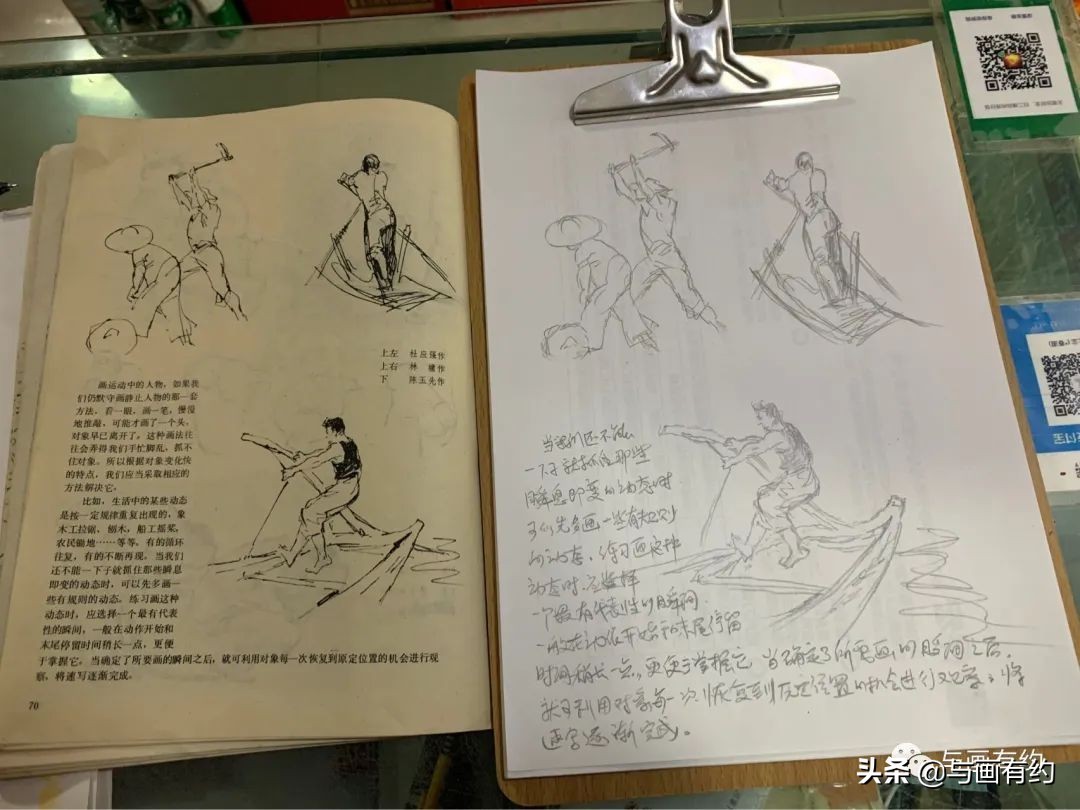 上左 杜应强作
上右 林墉作
下 陈玉先作
画运动中的人物，如果我
们仍默守画静止人物的那一套
方法，看一眼，画一笔，慢慢
地推敲，可能才画了一个头，
对象早已离开了。这种画法往
往会弄得我们手忙脚乱，抓不
住对象。所以根据对象变化快
的特点，我们应当采取相应的
方法解决它。
比如，生活中的某些动态
是按一定规律重复出现的，象
木工拉锯、刨木，船工摇桨，
农民锄地……等等。有的循环
往复，有的不断再现。当我们
还不能一下子就抓住那些瞬息
即变的动态时，可以先多画一
些有规则的动态。练习画这种
动态时，应选择一个最有代表
性的瞬间，一般在动作开始和
末尾停留时间稍长一点，更便
于掌握它。当确定了所要画的瞬间之后，就可利用对象每一次恢复到原定位置的机会进行观
察，将速写逐渐完成。
70
当我们还不能
一下子就抓住那些
瞬息即变的动态时
可以先多画一些有规则
的动态，练习画这种
动态时，应选择
一个最有代表性的瞬间
一般在动作开始和末尾停留
时间稍长一点，更便于掌握它 当确定了所要画的瞬间之后，
就可利用对象每一次恢复到原定位置的机会进行观察，将
速写逐渐完成。
与画有约
头条 @与画有约